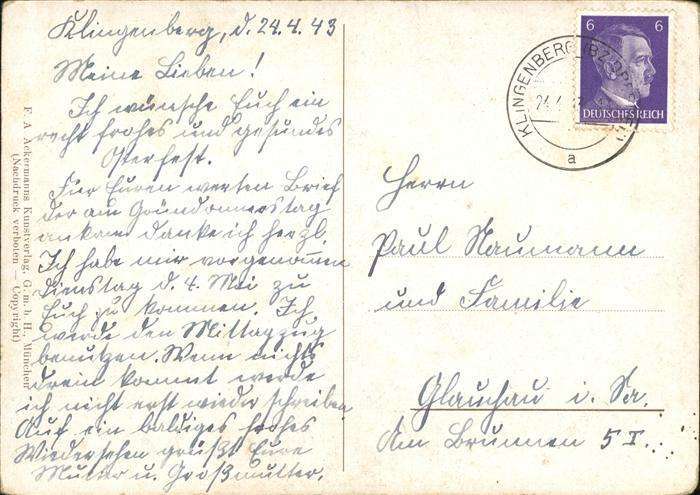 Klingenberg, d. 24.4.43
Meine Lieben!
Ich wünsche Euch ein
recht frohes und gesundes
Osterfest.
Für Euren werten Brief
der am Gründonnerstag
ankam danke ich herzl.
Ich habe mir vorgenommen
Dienstag d. 4. Mai zu
Euch zu kommen. Ich
werde den Mittagzug
benutzen. Wenn nichts
drein kommt werde
ich nicht erst wieder schreiben
Auf ein baldiges frohes
Wiedersehen grüßt Eure
Mutter u. Großmutter.
F. A. Ackermanns Kunstverlag, G. m. b. H., München
(Nachdruck verboten — Copyright)
6 6
DEUTSCHES REICH
KLINGENBERG (BZ DRESDEN)
24.4.
a
Herrn
Paul Naumann
und Familie
Glauchau i. Sa.
Am Brunnen 5 I.